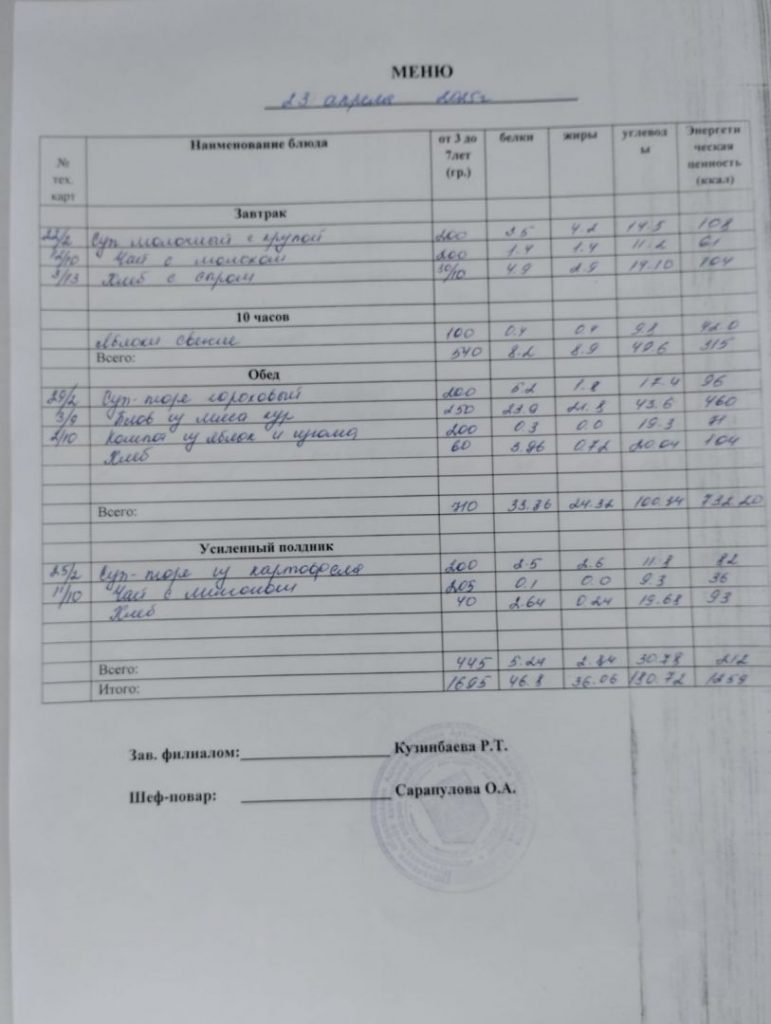 МЕНЮ
23 апреля 2025г
№ тех. карт Наименование блюда от 3 до 7лет (гр.) белки жиры углеводы Энергетическая ценность (ккал)
Завтрак
22/2 Суп молочный с крупой 200 3.5 4.2 14.5 108
12/10 Чай с молоком 200 1.4 1.4 11.2 61
3/13 Хлеб с сыром 30/10 4.9 2.9 14.10 104
10 часов
Яблоки свежие 100 0.4 0.4 9.8 42.0
Всего: 540 8.2 8.9 49.6 315
Обед
29/2 Суп-пюре гороховый 200 5.2 1.8 17.4 96
3/9 Плов из мяса кур 250 23.9 21.8 43.6 460
2/10 Компот из яблок и изюма 200 0.3 0.0 19.3 71
Хлеб 60 3.96 0.72 20.04 104
Всего: 710 33.36 24.32 100.34 732.20
Усиленный полдник
25/2 Суп-пюре из картофеля 200 2.5 2.6 11.8 82
11/10 Чай с лимоном 205 0.1 0.0 9.3 36
Хлеб 40 2.64 0.24 19.68 93
Всего: 445 5.24 2.84 30.78 212
Итого: 1695 46.8 36.06 180.72 1259
Зав. филиалом: Кузинбаева Р.Т.
Шеф-повар: Сарапулова О.А.